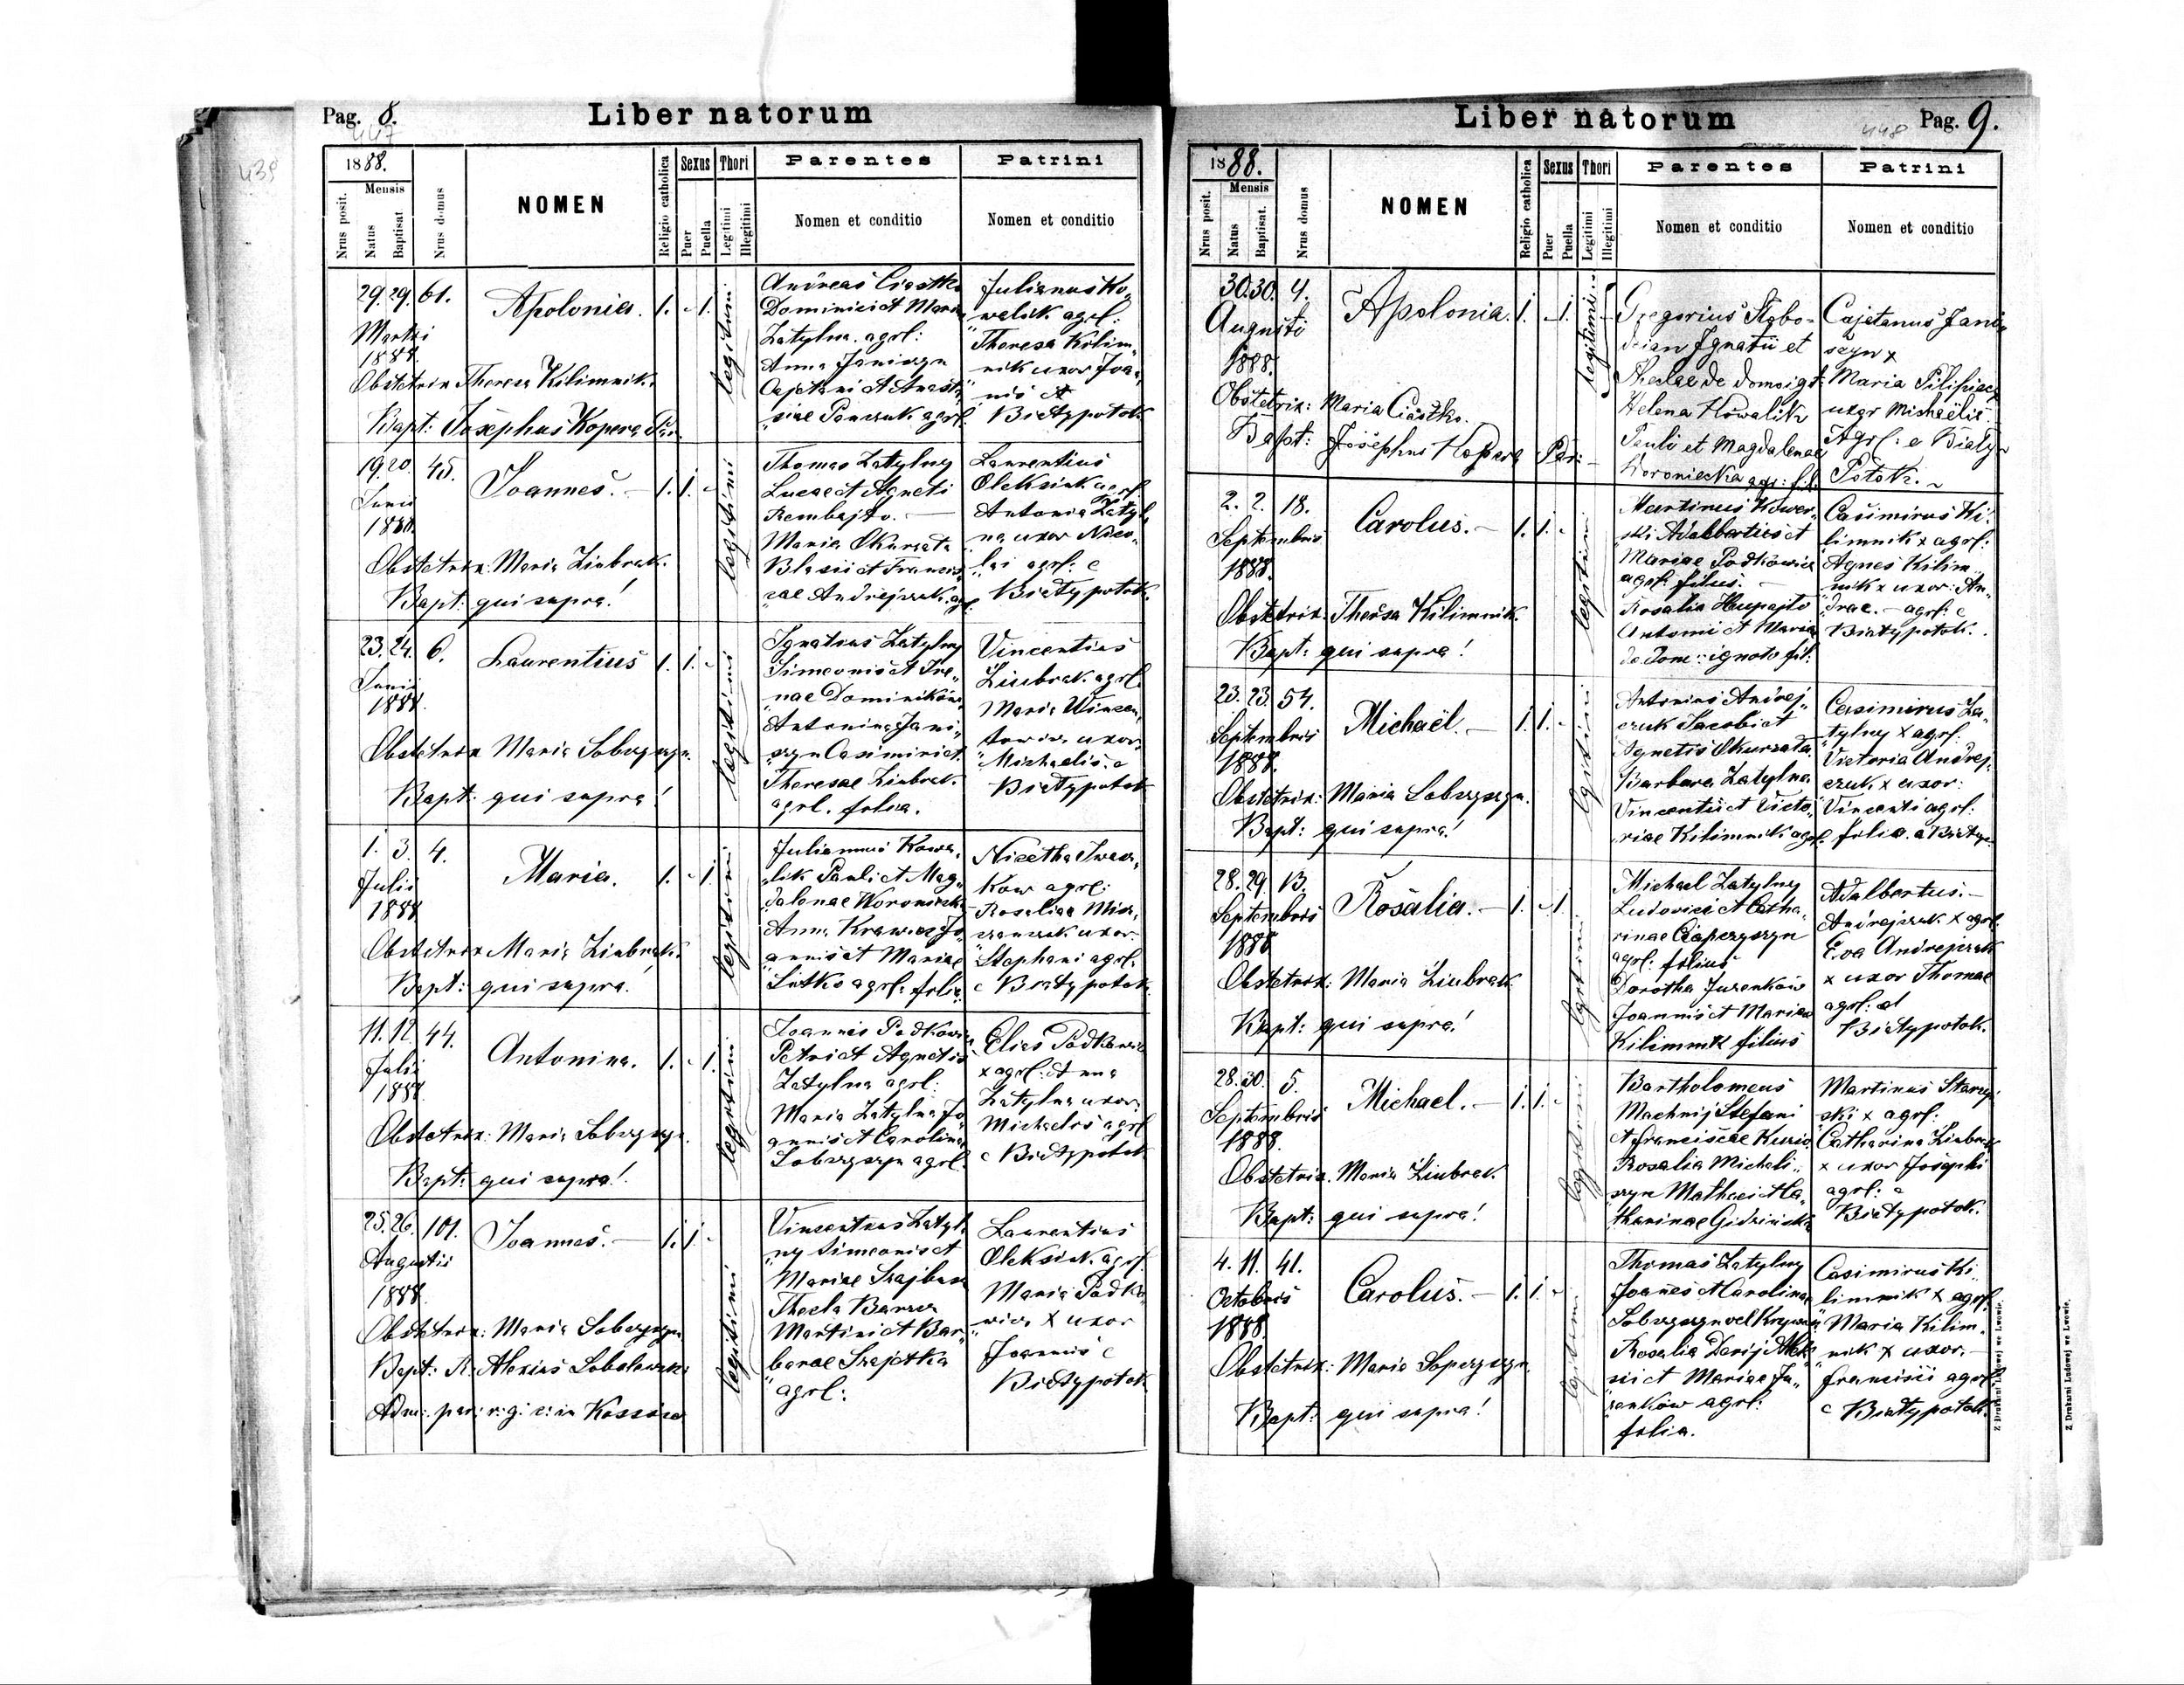 Pag. 8.
Liber natorum
447
439
1888.
Nrus posit.
Mensis
Natus
Baptisat
Nrus domus
NOMEN
Religio catholica
Sexus
Puer
Puella
Thori
Legitimi
Illegitimi
Parentes
Nomen et conditio
Patrini
Nomen et conditio
29. 29. 61.
Martii
1888.
Apolonia. 1. - 1.
legitimi
Obstetrix Theresa Kilimnik.
Bapt: Josephus Kopera Par.
Andreas Ciastko
Dominici et Maria
Zatylna. agrl:
Anna Janiszyn
Cajetani et Anasta„
„siae Panczuk agrl.
Julianus Ko„
walik agrl:
Theresa Kilim„
nik uxor Joa„
„nis et
Białypotok
19. 20. 45.
Junii
1888.
Joannes. - 1. 1. -
legitimi
Obstetrix: Maria Ziubrak.
Bapt: qui supra!
Thomas Zatylny
Lucae et Agneti
Rembajło. -
Maria Okurzata
Blasii et Francis„
cae Andrejczuk agrl.
Laurentius
Oleksiuk agrl.
Antonia Zatyl„
na uxor Nico„
„lai agrl: e
Białypotok.
23. 24. 6.
Junii
1888.
Laurentius 1. 1. -
legitimi
Obstetrix Maria Sobczyszyn.
Bapt: qui supra!
Ignatius Zatylny
Simeonis et Ire„
nae Dominików
Antonina Jani„
szyn Casimiri et
Theresae Ziubrak.
agrl. filia.
Vincentius
Ziubrak agrl.
Maria Wincen„
towicz uxor
Michaelis. e
Białypotok
1. 3. 4.
Julii
1888
Maria. 1. - 1.
legitimi
Obstetrix Maria Ziubrak.
Bapt: qui supra!
Julianus Kowa„
„lik Pauli et Mag„
dalenae Woroniecka
Anna Krawiec Jo„
annis et Mariae
Sitko agrl: filia.
Nicetha Iwasz„
kow agrl:
Rosaliae
uxor
Stephani agrl:
e Białypotok.
11. 12. 44.
Julii
1888.
Antonina. 1. - 1.
legitimi
Obstetrix: Maria Sobczyszyn.
Bapt: qui supra!
Joannis Podkowicz
Petri et Agnetis
Zatylna agrl:
Maria Zatylna Jo„
annis et Carolina
Sobczyszyn agrl.
Elias Podkowicz
x agrl: et Anna
Zatylna uxor
Michaelis agrl
e Białypotok
25. 26. 101.
Augusti
1888.
Joannes. - 1. 1. -
legitimi
Obstetrix: Maria Sobczyszyn
Bapt: R. Alexius Sobolewski
Adm: par: r: g: c: in Kossow
Vincentius Zatyl„
ny Simeonis et
Mariae Szajbura
Thecla Barna
Martini et Bar„
barae Szajtka
agrl:
Laurentius
Oleksiuk agrl.
Maria Podko„
wicz x uxor
Joannis e
Białypotok
Liber natorum
448
Pag. 9.
1888.
Nrus posit.
Mensis
Natus
Baptisat.
Nrus domus
NOMEN
Religio catholica
Sexus
Puer
Puella
Thori
Legitimi
Illegitimi
Parentes
Nomen et conditio
Patrini
Nomen et conditio
30. 30. 4.
Augusti
1888.
Apolonia. 1. - 1.
legitimi
Obstetrix: Maria Ciastko.
Bapt: Josephus Kopera Par: -
Gregorius Słobo-
dzian Ignatii et
Theclae de domo igt:
Helena Kowalik
Pauli et Magdalenae
Woroniecka agr: fil.
Cajetanus Jani„
szyn x
Maria Pilipiec
uxor Michaëlis
Agrl: e Biały-
Potok.
2. 2. 18.
Septembris
1888.
Carolus. - 1. 1. -
legitimi
Obstetrix: Theresa Kilimnik.
Bapt: qui supra!
Martinus Kower„
ski Adalbertus et
Mariae Podkowicz
agrl: filius. -
Rosalia Hupajlo
Antonii et Maria
de Dom: ignoto fil:
Casimirus Ki„
limnik x agrl:
Agnes Kilim„
nik x uxor: An„
„drae. - agrl: e
Białypotok.
23. 23. 54.
Septembris
1888.
Michaël. - 1. 1. -
legitimi
Obstetrix: Maria Sobczyszyn.
Bapt: qui supra!
Antonius Andrej„
czuk Jacobi et
Agnetis Okurzata
Barbara Zatylna
Vincentii et Victo„
riae Kilimnik agrl.
Casimirus Za„
tylny x agrl:
Victoria Andrej„
czuk x uxor:
Vincenti agrl:
filia.
28. 29. 13.
Septembris
1888
Rosalia. - 1. - 1.
legitimi
Obstetrix: Maria Ziubrak
Bapt: qui supra!
Michael Zatylny
Ludovici et Catha„
rinae Ciapczyszyn
agrl: filius
Dorotha Jurenków
Joannis et Mariae
Kilimnik filius
Adalbertus. -
Andrejczuk x agrl.
Eva Andrejczuk
x uxor Thomae
agrl: et
Białypotok.
28. 30. 5.
Septembris
1888.
Michael. - 1. 1. -
legitimi
Obstetrix. Maria Ziubrak.
Bapt: qui supra!
Bartholomeus
Machnij Stefani
et Franciscae Kuzio
Rosalia Michali„
szyn Mathaei et Ca„
tharinae Gidzińska
Martinus Starzy„
ski x agrl:
Catharina Ziubrak
x uxor Josephi
agrl: e
Białypotok.
4. 11. 41.
Octobris
1888.
Carolus. - 1. 1. -
legitimi
Obstetrix: Maria Sopczyszyn.
Bapt: qui supra!
Thomas Zatylny
Joannes et Carolinae
Sobczyszyn vel
Rosalia Derij Alek„
sii et Mariae Ju„
renków agrl:
filia.
Casimirus Ki„
limnik x agrl.
Maria Kilim„
nik x uxor. -
Francisii agrl
e Białypotok.
Z Drukarni Ludowej we Lwowie.
Z Drukarni Ludowej we Lwowie.